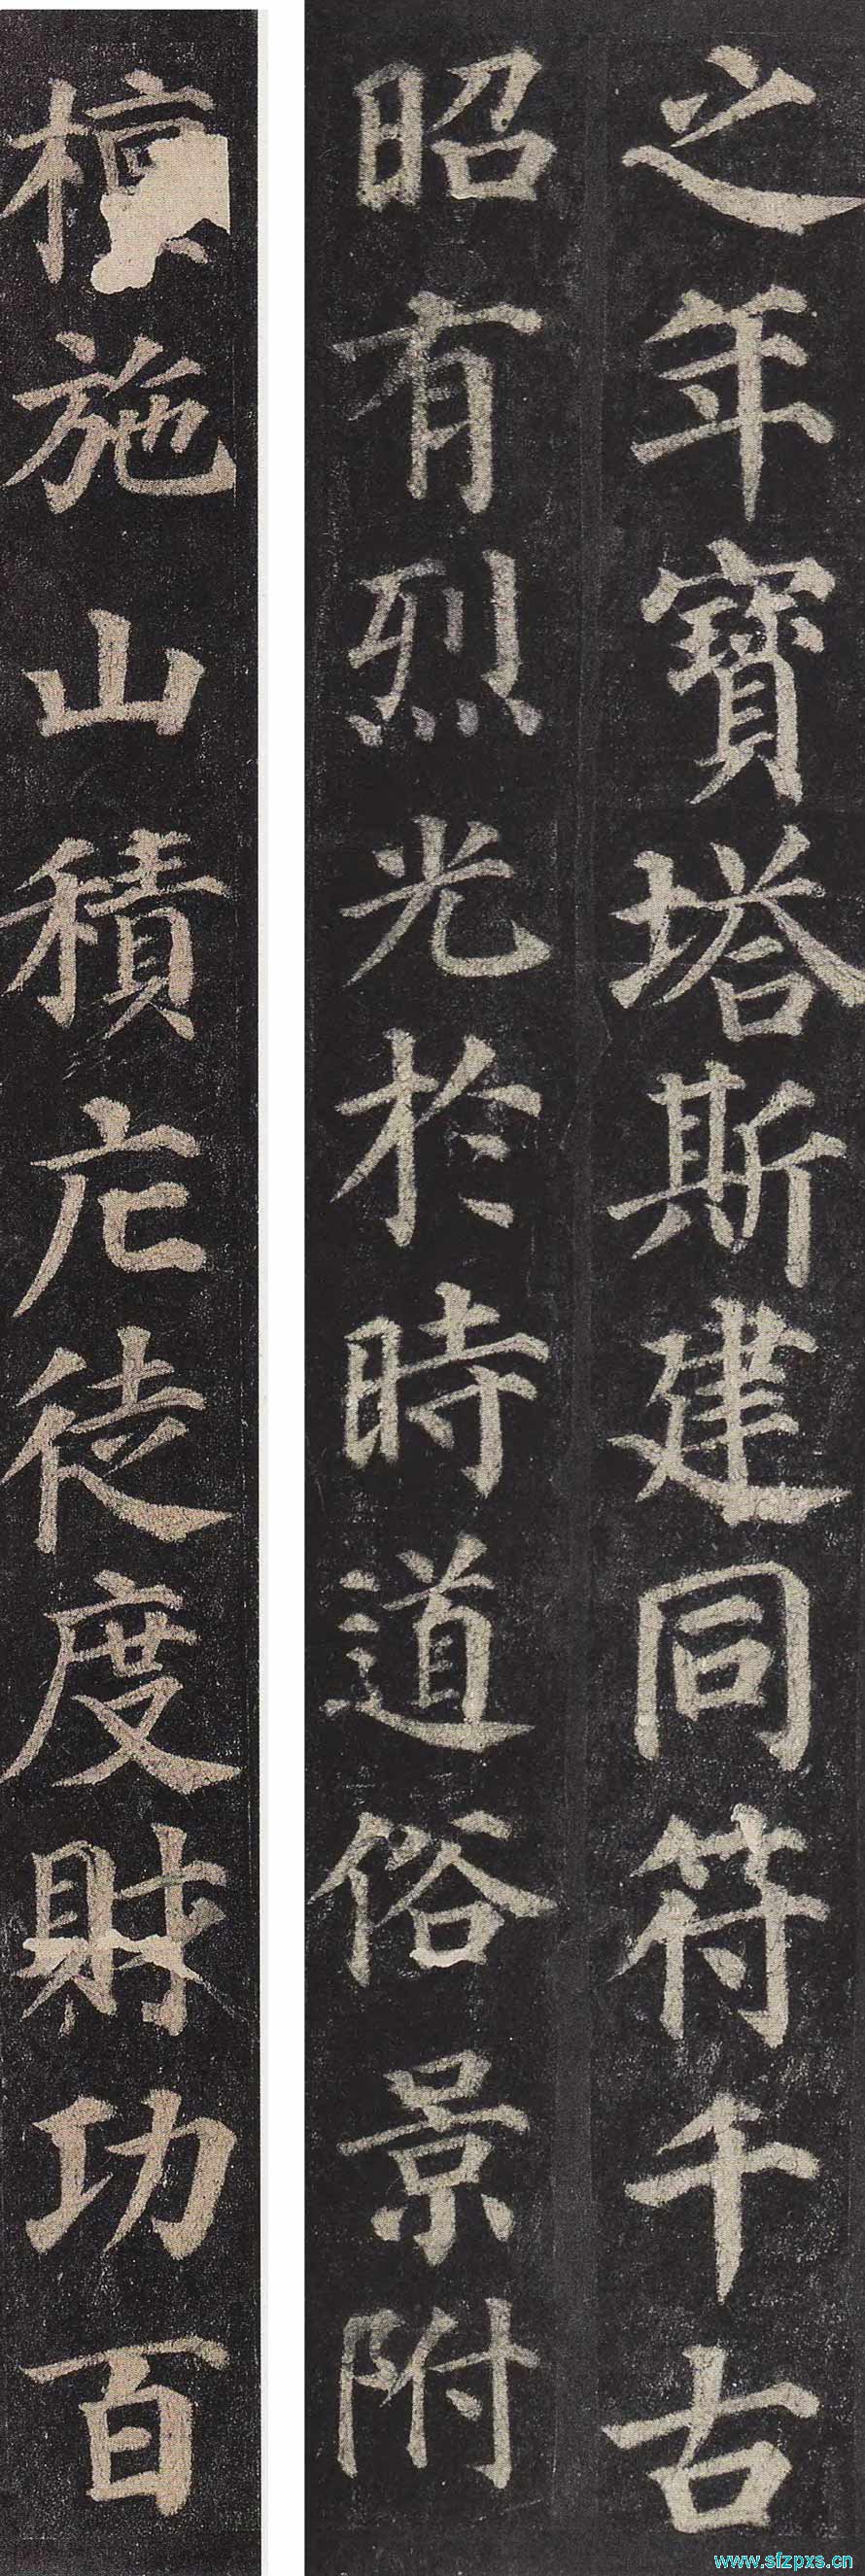 之年寶塔斯建同符千古
昭有烈光於時道俗景附
檀施山積庀徒度財功百
www.sfzpxs.cn